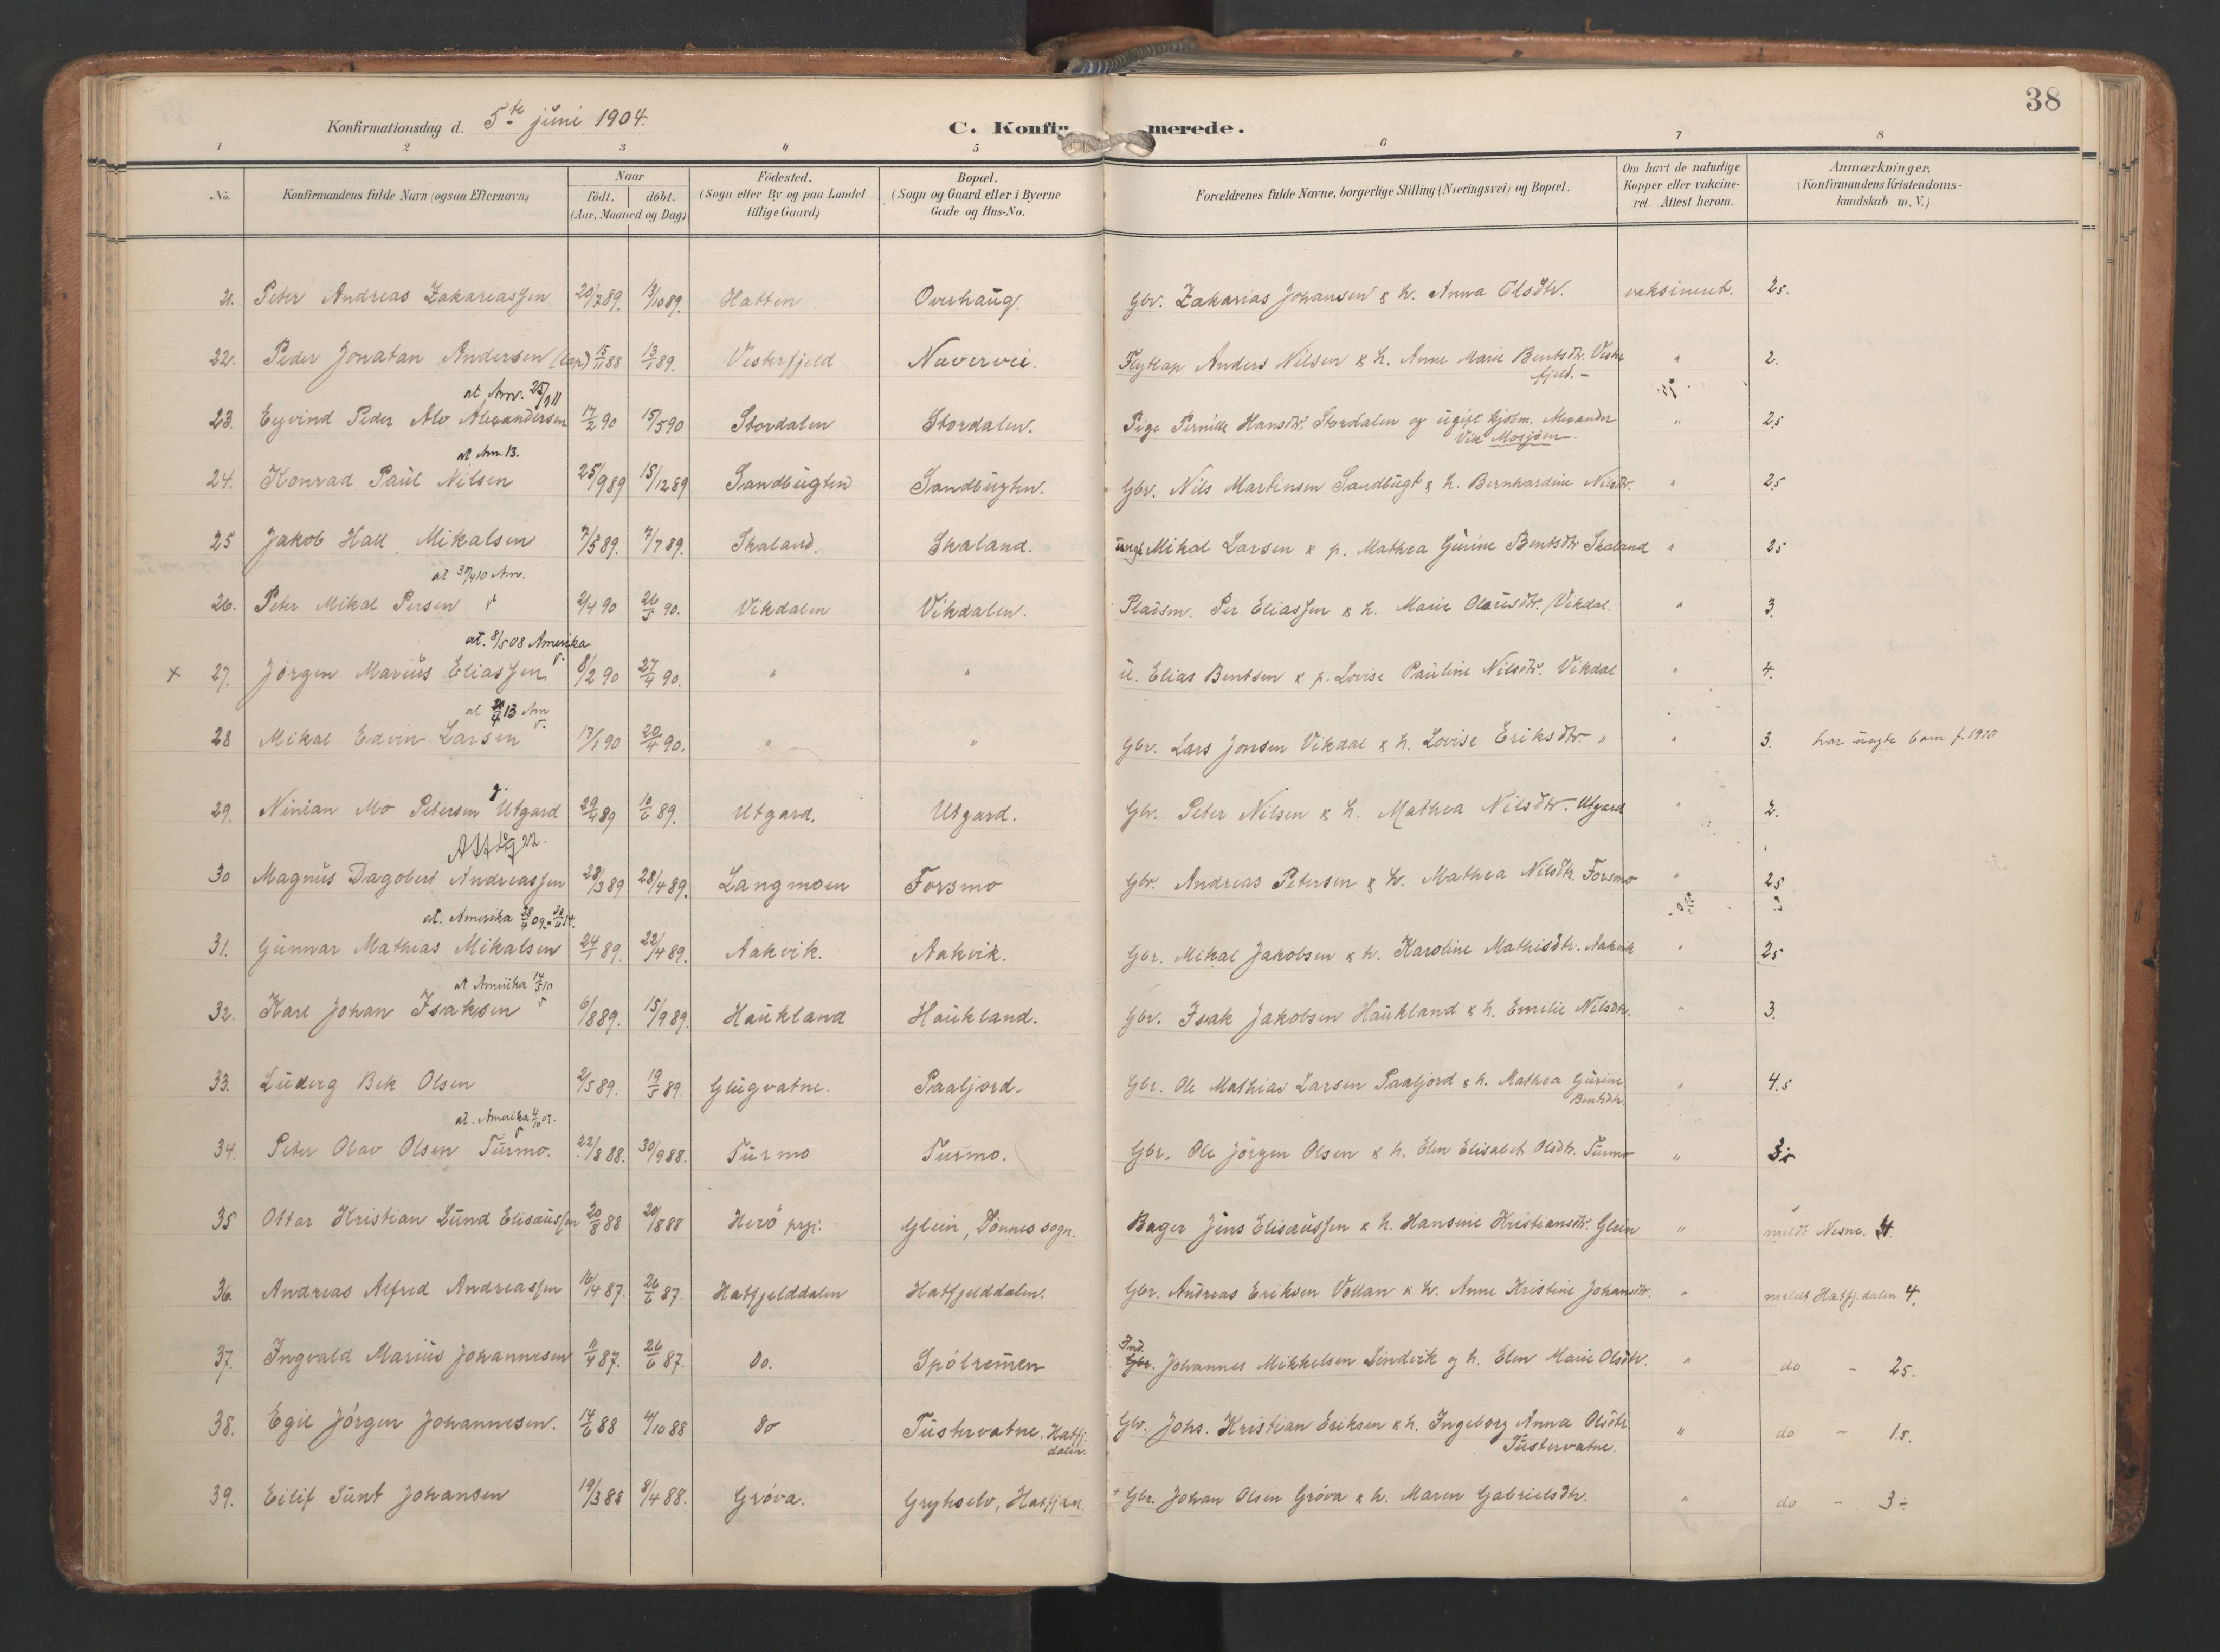 38
Konfirmationsdag d. 5te juni 1904.
C. Konfir merede.
1 2 3 4 5 6 7 8
No. Konfirmandens fulde Navn (ogsaa Efternavn) Naar Födested. Bopæl. Forældrenes fulde Navne, borgerlige Stilling (Næringsvei) og Bopæl. Om havt de naturlige Anmærkninger.
födt. döbt. (Sogn eller By og paa Landet (Sogn og Gaard eller i Byerne Kopper eller vakcine- (Konfirmandens Kristendoms-
(Aar, Maaned og Dag) tillige Gaard) Gade og Hus-No. ret. Attest herom. kundskab m. V.)
21. Peter Andreas Zakariassen 20/7 89. 13/10 89. Hatten Overhaug. Gbr. Zakarias Johansen & h. Anna Olsdtr. vaksineret. 2.5.
22. Peder Jonatan Andersen (lap) 15/11 88 13/1 89. Vesterfjeld Nævervei. Flytlap Anders Nilsen & h. Anne Marie Bentsdtr. Vester " 2.
fjeld. -
at Am. 25/3 11
23. Eyvind Peder Alv Alexandersen 17/2 90 15/5 90 Stordalen Stordalen. Pige Pernille Hansdtr. Stordalen og ugift Alexander " 2.5
Vik Mosjöen.
at Am. 13.
24. Konrad Paul Nilsen 25/9 89 15/12 89 Sandbugten Sandbugten. Gbr. Nils Martinsen Sandbugt & h. Bernhardine Nilsdtr. " 2.5
25 Jakob Hall Mikalsen 7/5 89. 7/7 89. Skaland. Skaland. ungk Mikal Larsen & p. Mathea Gurine Bentsdtr Skaland " 2.5
at 30/4 10 Am.
26. Peter Mikal Persen 2/4 90 26/5 90. Vikdalen Vikdalen. Pladsm. Per Eliassen & h. Marie Olausdtr. Vikdal. " 3.
at. 8/5 08 Amerika
x 27. Jörgen Marius Eliassen 8/2 90 27/4 90. " " u. Elias Bentsen & p. Lovise Pauline Nilsdtr. Vikdal " 4.
at 24/4 13 Am
28 Mikal Edvin Larsen 17/1 90 20/4 90. " " Gbr. Lars Jonsen Vikdal & h. Lovise Eriksdtr. " " 3. har uægte barn f. 1910
29. Ninian Mo Petersen Utgard 29/4 89 10/6 89. Utgard. Utgard. Gbr. Peter Nilsen & h. Mathea Nilsdtr. Utgard " 2.
Att 22.
30 Magnus Dagobert Andreassen 28/3 89 28/4 89. Langmoen Forsmo Gbr. Andreas Petersen & h. Mathea Nilsdtr. Forsmo " 2.5
at. Amerika 28/4 09
31. Gunnar Mathias Mikalsen 24/1 89. 22/4 89. Aakvik. Aakvik. Gbr. Mikal Jakobsen & h. Karoline Mathisdtr. Aakvik " 2.5
at Amerika 14/5 10
32. Karl Johan Isaksen 6/8 89. 15/9 89. Haukland Haukland. Gbr. Isak Jakobsen Haukland & h. Emilie Nilsdtr. " 3.
33. Ludvig Bek Olsen 2/5 89. 19/5 89. Glugvatne. Paaljord. Gbr. Ole Mathias Larsen Paaljord & h. Mathea Gurine " 4.5
Bentsdtr.
at. Amerika 4/10 07.
34. Peter Olav Olsen Turmo. 22/8 88. 30/9 88. Turmo Turmo. Gbr. Ole Jörgen Olsen & h. Elen Elisabet Olsdtr. Turmo " 3
35 Ottar Kristian Lund Elisæussen 20/8 88 20/8 88 Herö prgj. Glein, Dönnes sogn. Bager Jens Elisæussen & h. Hansine Kristiansdtr. Glein " meldt Nesne. 4.
36. Andreas Alfred Andreassen 16/4 87. 26/6 87. Hatfjelddalen Hatfjelddalen. Gbr. Andreas Eriksen Vollan & h. Anne Kristine Johansdtr. " meldt Hatfj.dalen 4.
Ind.
37. Ingvald Marius Johannesen 11/4 87. 26/6 87. Do. Spölremen Gbr. Johannes Mikkelsen Lindvik og h. Elen Marie Olsdtr. " do - 2.5.
38. Egil Jörgen Johannesen. 14/6 88 4/10 88 do Tustervatne, Hatfj. Gbr. Johs. Kristian Eriksen & h. Ingeborg Anna Olsdtr " do - 1.5.
dalen. Tustervatne.
39. Eilif Sunt Johansen 19/3 88 8/4 88. Gröva. Grykselv, Hatfjdal. Gbr. Johan Olsen Gröva & h. Maren Gabrielsdtr. " do - 3 ÷